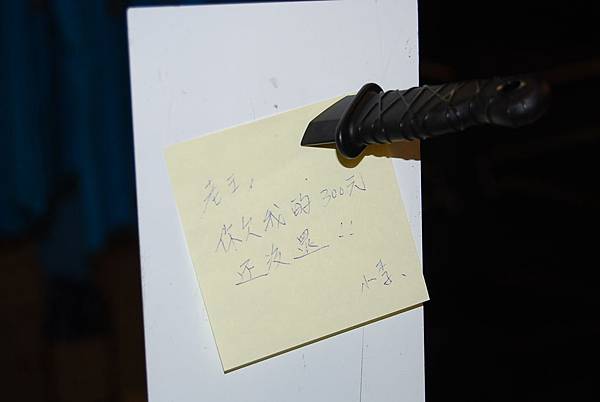 老王，
你欠我的300元
还沒還！！
小李、